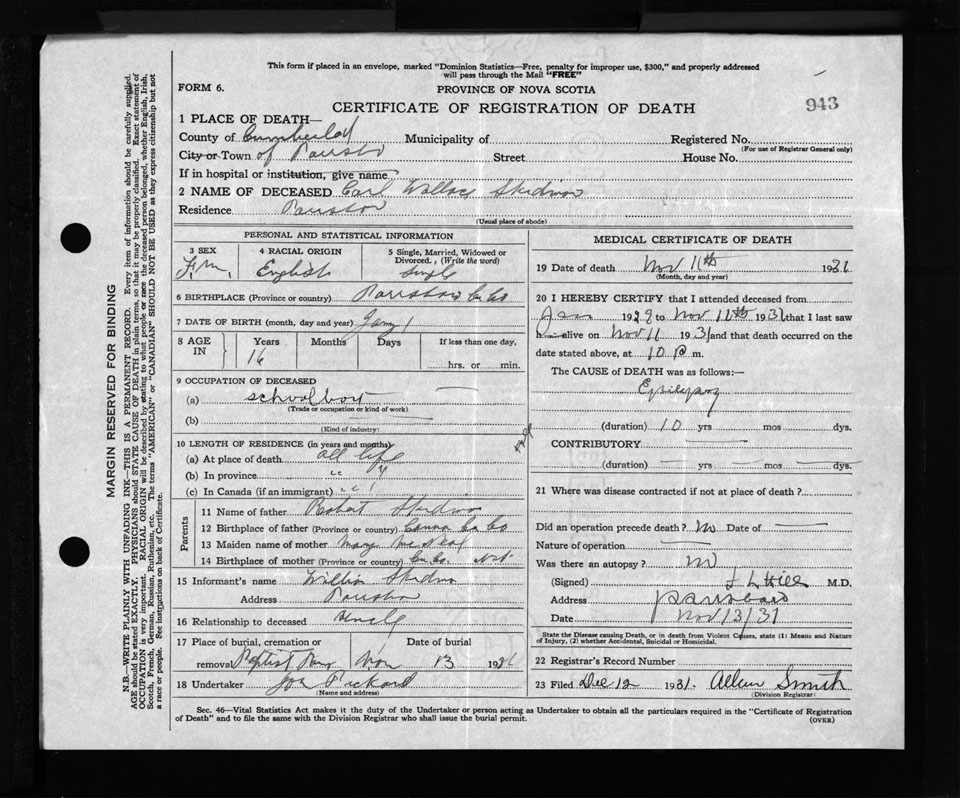 This form if placed in an envelope, marked "Dominion Statistics—Free, penalty for improper use, $300," and properly addressed
will pass through the Mail "FREE"
FORM 6.
PROVINCE OF NOVA SCOTIA
943
CERTIFICATE OF REGISTRATION OF DEATH
1 PLACE OF DEATH—
County of Cumberland Municipality of Registered No.
(For use of Registrar General only)
City or Town of Street House No.
If in hospital or institution, give name
2 NAME OF DECEASED Carl Wallace
Residence
(Usual place of abode)
PERSONAL AND STATISTICAL INFORMATION
3 SEX 4 RACIAL ORIGIN 5 Single, Married, Widowed or
Divorced. (Write the word)
English Single
6 BIRTHPLACE (Province or country)
7 DATE OF BIRTH (month, day and year)
8 AGE IN Years Months Days If less than one day,
16
hrs. or min.
9 OCCUPATION OF DECEASED
(a) schoolboy
(Trade or occupation or kind of work)
(b)
(Kind of industry)
10 LENGTH OF RESIDENCE (in years and months)
(a) At place of death all life
(b) In province " "
(c) In Canada (if an immigrant) " "
Parents
11 Name of father Robert
12 Birthplace of father (Province or country)
13 Maiden name of mother Mary
14 Birthplace of mother (Province or country) N.S.
15 Informant's name William
Address
16 Relationship to deceased Uncle
17 Place of burial, cremation or Date of burial
removal Baptist Nov 13 1931
18 Undertaker Pickard
(Name and address)
MEDICAL CERTIFICATE OF DEATH
19 Date of death Nov 11th 1931
(Month, day and year)
20 I HEREBY CERTIFY that I attended deceased from
Jan 1929 to Nov 11th 1931 that I last saw
h alive on Nov 11 1931 and that death occurred on the
date stated above, at 10 P m.
The CAUSE of DEATH was as follows:—
Epilepsy
(duration) 10 yrs mos dys.
CONTRIBUTORY
(duration) yrs mos dys.
21 Where was disease contracted if not at place of death?
Did an operation precede death? no Date of
Nature of operation
Was there an autopsy? no
(Signed) Hill M.D.
Address Parrsboro
Date Nov 13/31
State the Disease causing Death, or in death from Violent Causes, state (1) Means and Nature
of Injury, (2) whether Accidental, Suicidal or Homicidal.
22 Registrar's Record Number
23 Filed Dec 12 1931. Smith
(Division Registrar)
Sec. 46—Vital Statistics Act makes it the duty of the Undertaker or person acting as Undertaker to obtain all the particulars required in the "Certificate of Registration
of Death" and to file the same with the Division Registrar who shall issue the burial permit.
(OVER)
MARGIN RESERVED FOR BINDING
N.B.—WRITE PLAINLY WITH UNFADING INK—THIS IS A PERMANENT RECORD. Every item of information should be carefully supplied.
AGE should be stated EXACTLY. PHYSICIANS should STATE CAUSE OF DEATH in plain terms, so that it may be properly classified. Exact statement of
OCCUPATION is very important. RACIAL ORIGIN will be described by stating to what people or race the deceased person belonged, whether English, Irish,
Scotch, French, German, Russian, Ruthenian, etc. The terms "AMERICAN" or "CANADIAN" SHOULD NOT BE USED as they express citizenship but not
a race or people. See instructions on back of Certificate.